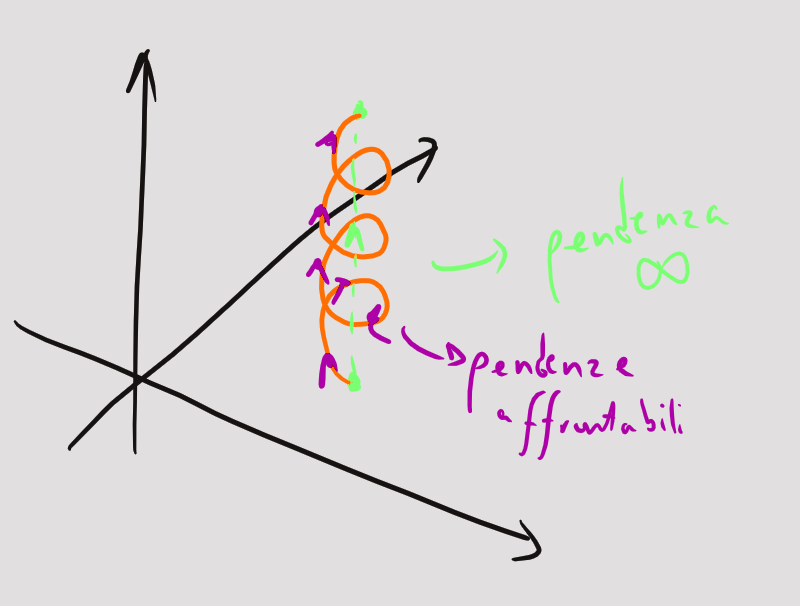 pendenza
∞
pendenze
affrontabili